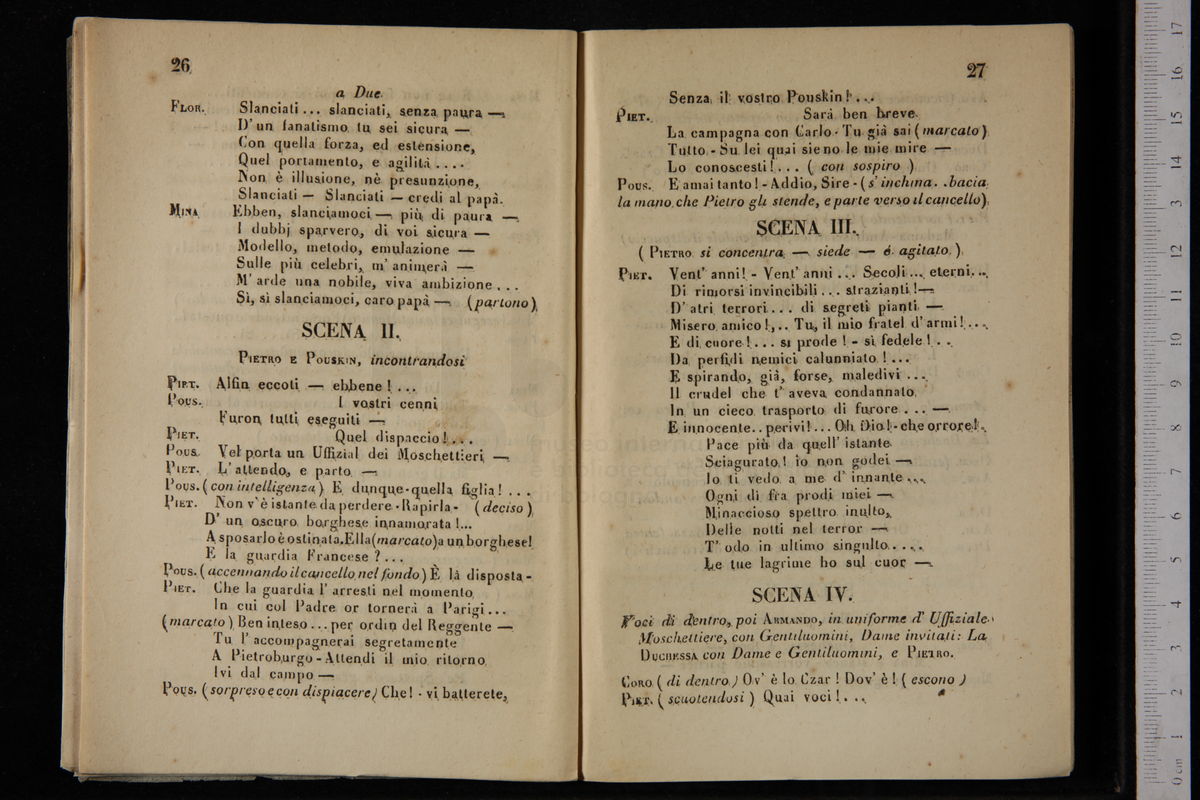 26
a Due
FLOR. Slanciati ... slanciati, senza paura —
D' un fanatismo tu sei sicura —
Con quella forza, ed estensione,
Quel portamento, e agilità ....
Non è illusione, nè presunzione,
Slanciati — Slanciati — credi al papà.
MINA Ebben, slanciamoci — più di paura —
I dubbj sparvero, di voi sicura —
Modello, metodo, emulazione —
Sulle più celebri, m' animerà —
M' arde una nobile, viva ambizione ...
Sì, sì slanciamoci, caro papà — (partono)
SCENA II.
PIETRO E POUSKIN, incontrandosi
PIET. Alfin eccoti — ebbene ! ...
POUS. I vostri cenni
Furon tutti eseguiti —
PIET. Quel dispaccio ! ...
POUS. Vel porta un Uffizial dei Moschettieri —
PIET. L' attendo, e parto —
POUS. (con intelligenza) E dunque-quella figlia ! ...
PIET. Non v' è istante da perdere - Rapirla - (deciso)
D' un oscuro borghese innamorata !...
A sposarlo è ostinata. Ella (marcato) a un borghese!
E la guardia Francese ? ...
POUS. (accennando il cancello nel fondo) È là disposta -
PIET. Che la guardia l' arresti nel momento
In cui col Padre or tornerà a Parigi...
(marcato) Ben inteso ... per ordin del Reggente —
Tu l' accompagnerai segretamente
A Pietroburgo - Attendi il mio ritorno
Ivi dal campo —
POUS. (sorpreso e con dispiacere) Che! - vi batterete,
27
Senza il vostro Pouskin ! ...
PIET. Sarà ben breve.
La campagna con Carlo - Tu già sai (marcato)
Tutto - Su lei quai sieno le mie mire —
Lo conoscesti ! ... ( con sospiro )
POUS. E amai tanto ! - Addio, Sire - (s' inchina. bacia
la mano che Pietro gli stende, e parte verso il cancello)
SCENA III.
( PIETRO si concentra — siede — è agitato. )
PIET. Vent' anni! - Vent' anni ... Secoli ... eterni...
Di rimorsi invincibili ... strazianti ! —
D' atri terrori ... di segreti pianti —
Misero amico !,.. Tu, il mio fratel d' armi ! ...
E di cuore ! ... sì prode ! - sì fedele ! ..
Da perfidi nemici calunniato ! ...
E spirando, già, forse, maledivi ...
Il crudel che t' aveva condannato
In un cieco trasporto di furore ... —
E innocente.. perivi ! ... Oh Dio ! - che orrore!.
Pace più da quell' istante
Sciagurato ! io non godei —
Io ti vedo a me d' innante ...
Ogni dì fra prodi miei —
Minaccioso spettro inulto,
Delle notti nel terror —
T' odo in ultimo singulto....
Le tue lagrime ho sul cuor —
SCENA IV.
Voci di dentro, poi ARMANDO, in uniforme d' Uffiziale
Moschettiere, con Gentiluomini, Dame invitati: La
DUCHESSA con Dame e Gentiluomini, e PIETRO.
CORO ( di dentro ) Ov' è lo Czar ! Dov' è ! ( escono )
PIET. ( scuotendosi ) Quai voci ! ...